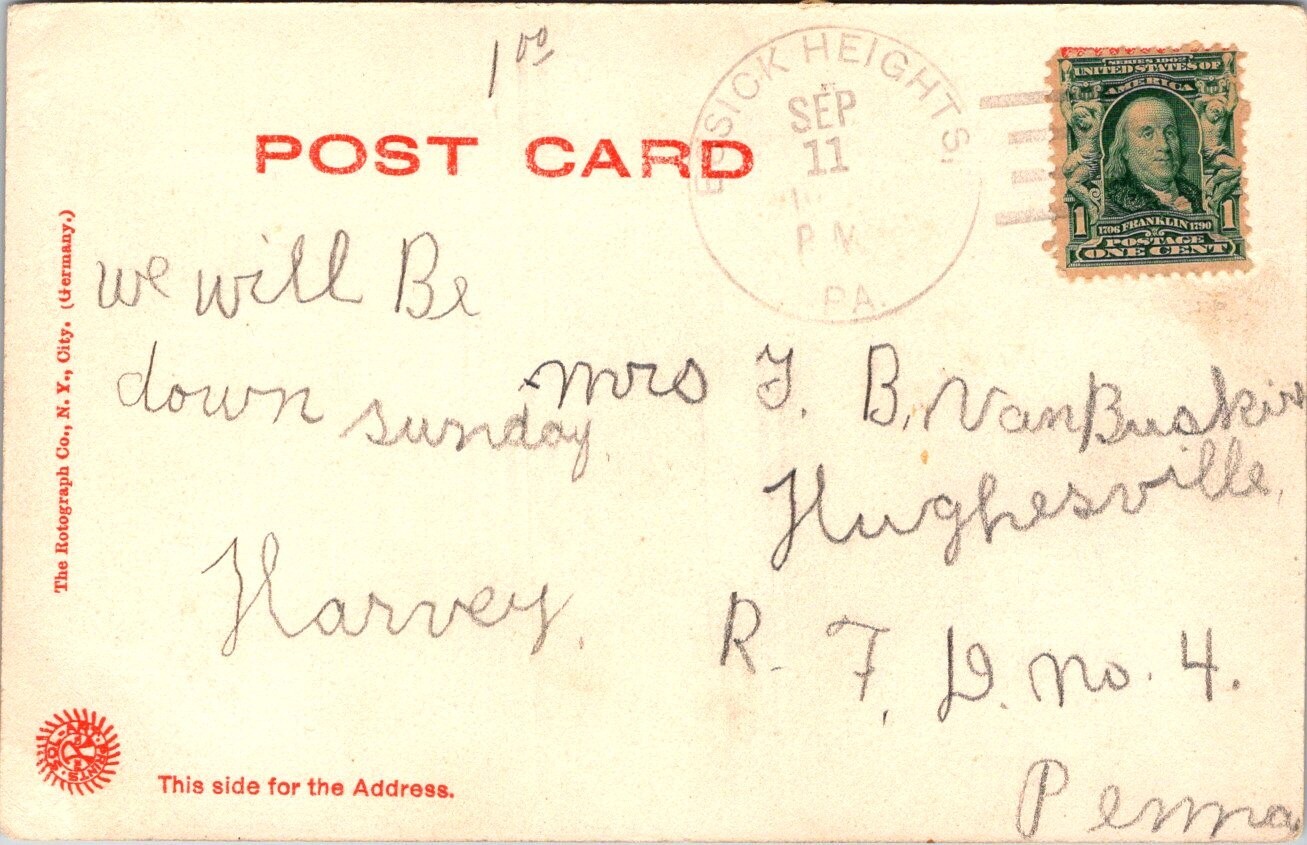 1 00
POST CARD
HEIGHTS.
SEP
11
P M
PA.
SERIES 1902
UNITED STATES OF
AMERICA
1 1706 FRANKLIN 1790 1
POSTAGE
ONE CENT
The Rotograph Co., N. Y., City. (Germany.)
we will Be
down sunday
Harvey.
Mrs
B. VanBuskirk
Hughesville,
R. F. D. No. 4.
Penna
SOL-ART-PRINTS
This side for the Address.